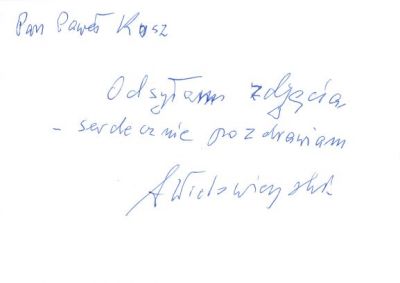 Pan Paweł Kusz
Odsyłam zdjęcia
- serdecznie pozdrawiam
AWielowieyski